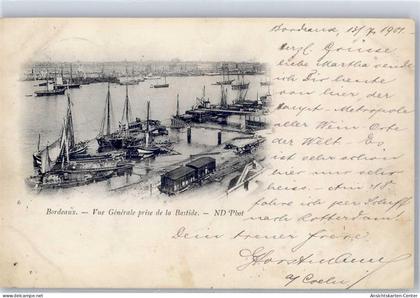 Bordeaux, 15/7 1901.
Herzl. Grüsse
liebe Martha sende
ich Dir heute
von hier der
Haupt-Metropole
aller Wein-Orte
der Welt - Es
ist sehr schön
hier nur sehr
heiss. - Am 18
fahre ich per Schiff
nach Rotterdam.
Dein treuer
Bordeaux. - Vue Générale prise de la Bastide. - ND Phot
www.Ansichtskarten-Center.de